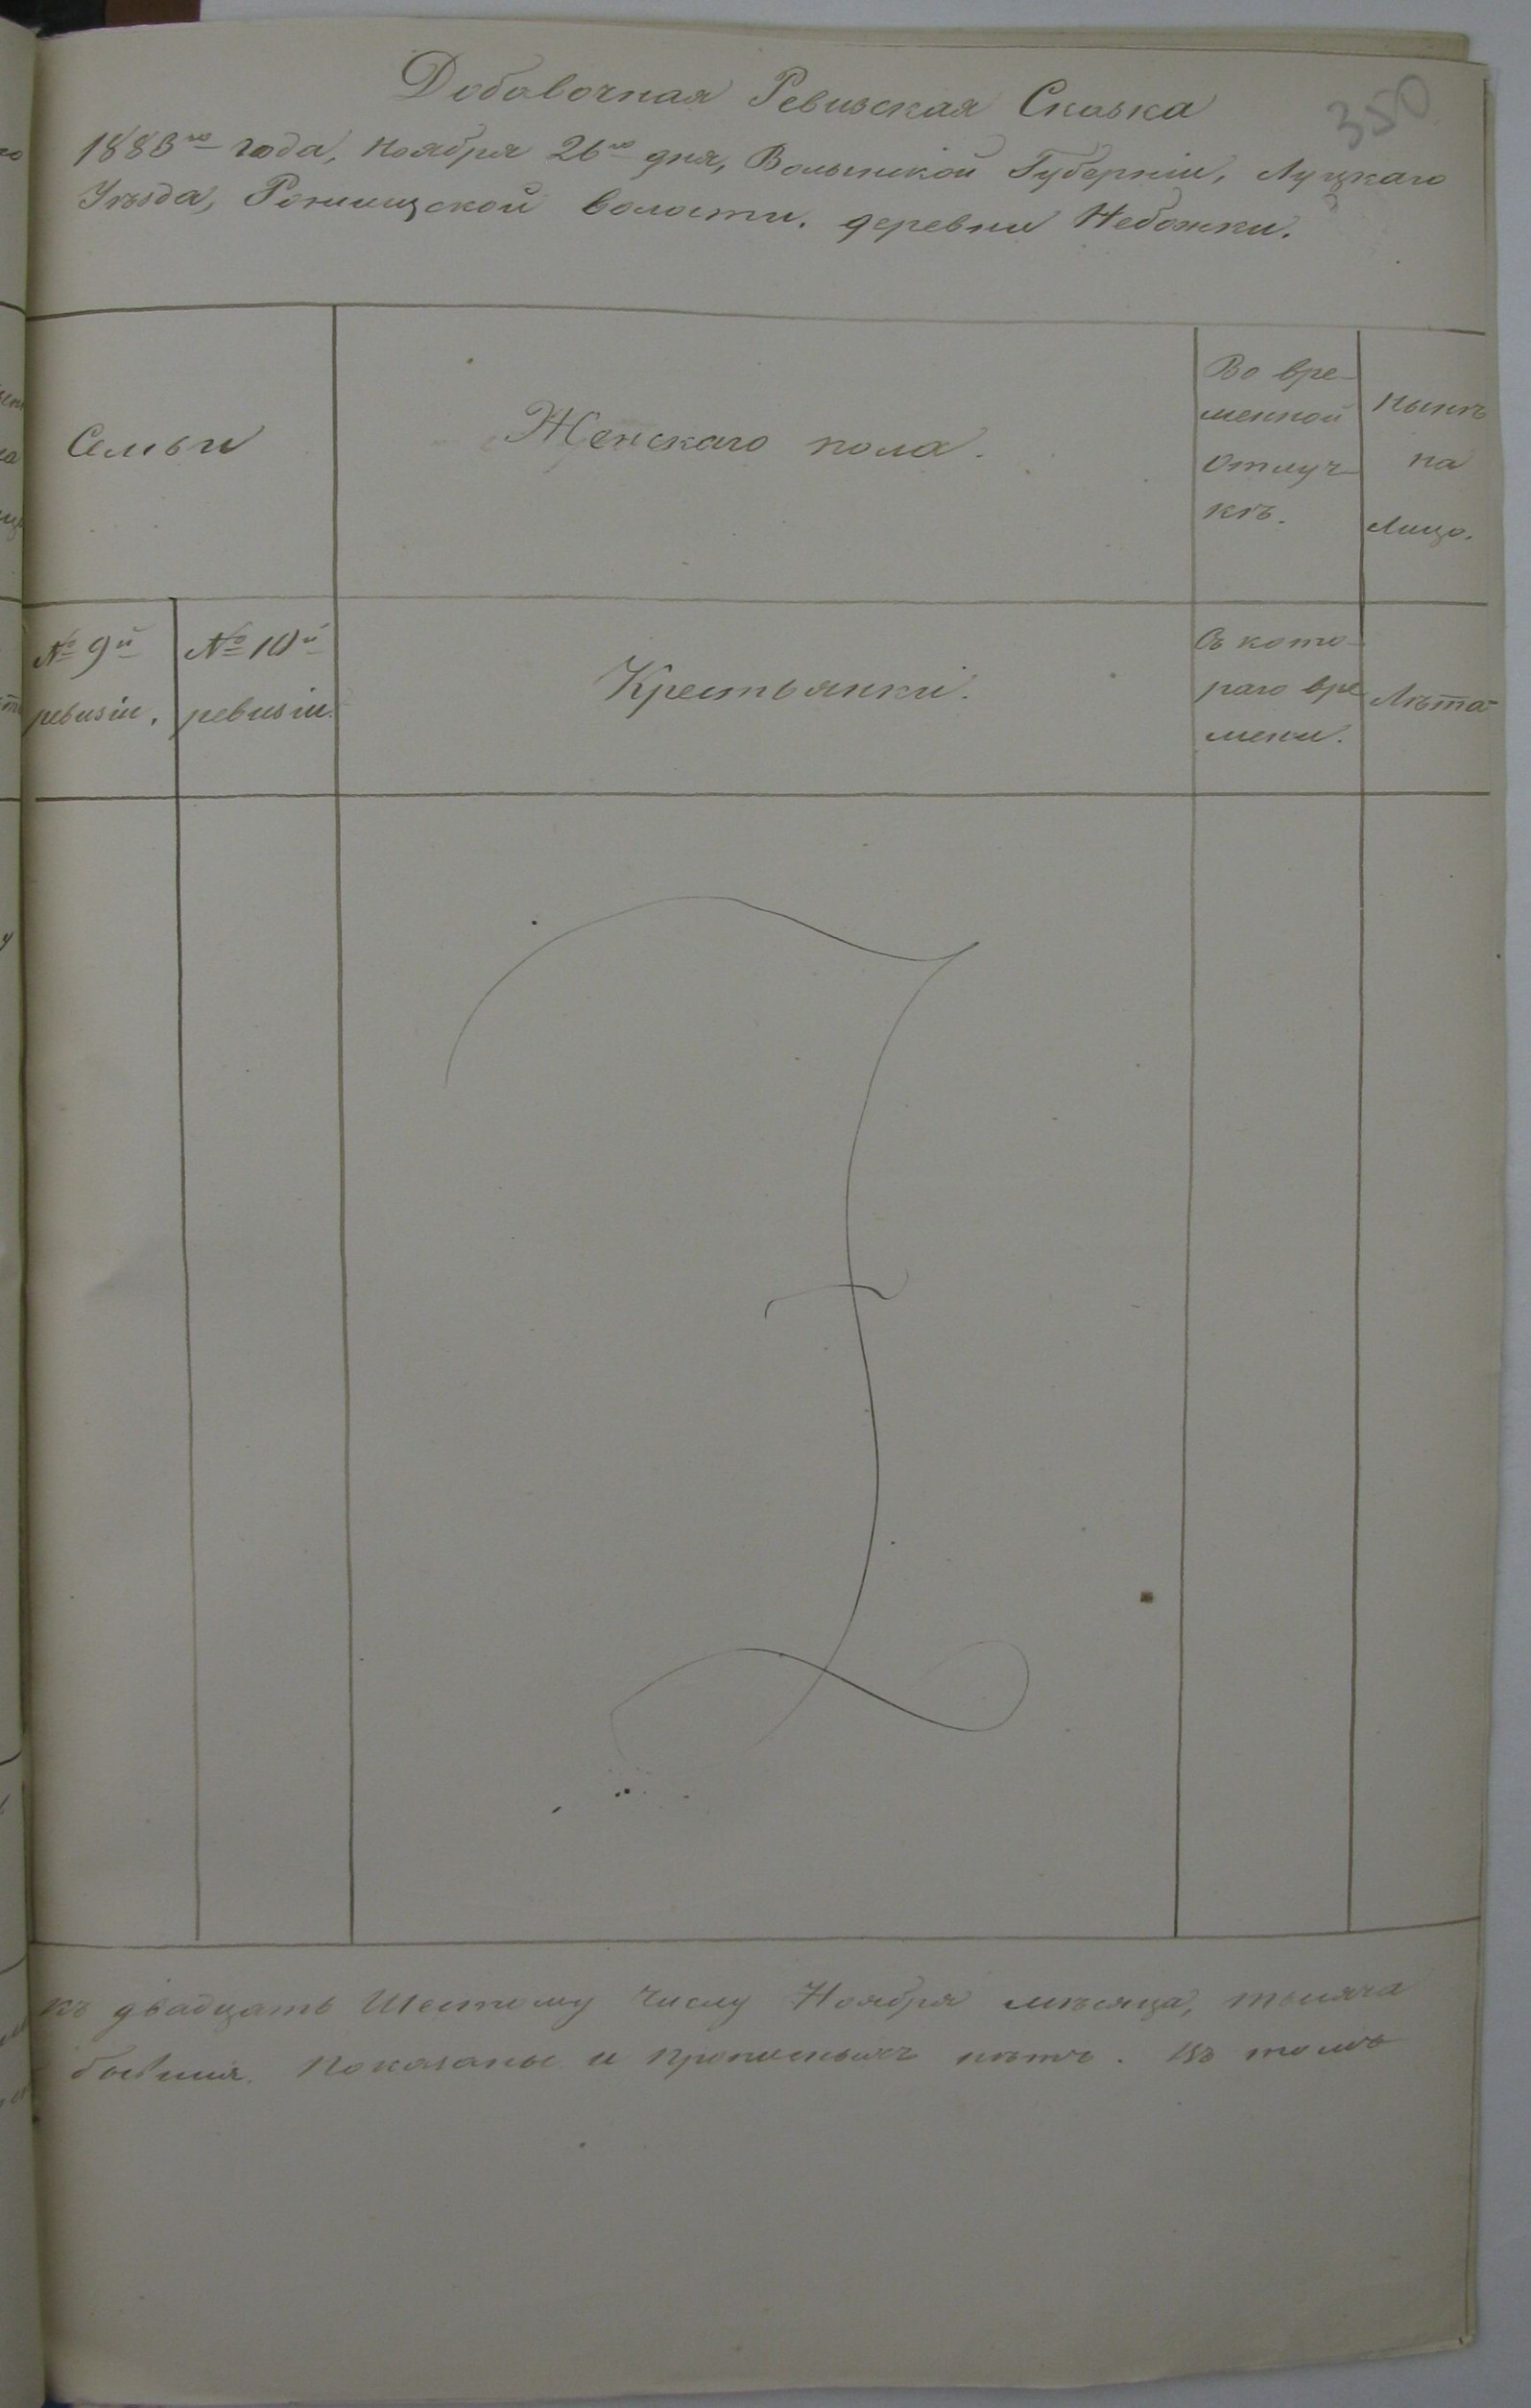 350
Добавочная Ревизская Сказка
1883го года, Ноября 26го дня, Волынской Губерніи, Луцкаго
Уѣзда, Рожищской волости. деревни Небожки.
Семьи
Женскаго пола.
Во вре-
менной
отлуч-
кѣ.
Нынѣ
на
Лицо.
№ 9й
ревизіи.
№ 10й
ревизіи.
Крестьянки.
Съ кото-
раго вре
мени.
Лѣта
къ двадцать Шестому Числу Ноября мѣсяца, тысяча
бывшія. Показаны и прописныхъ нѣтъ. Въ томъ